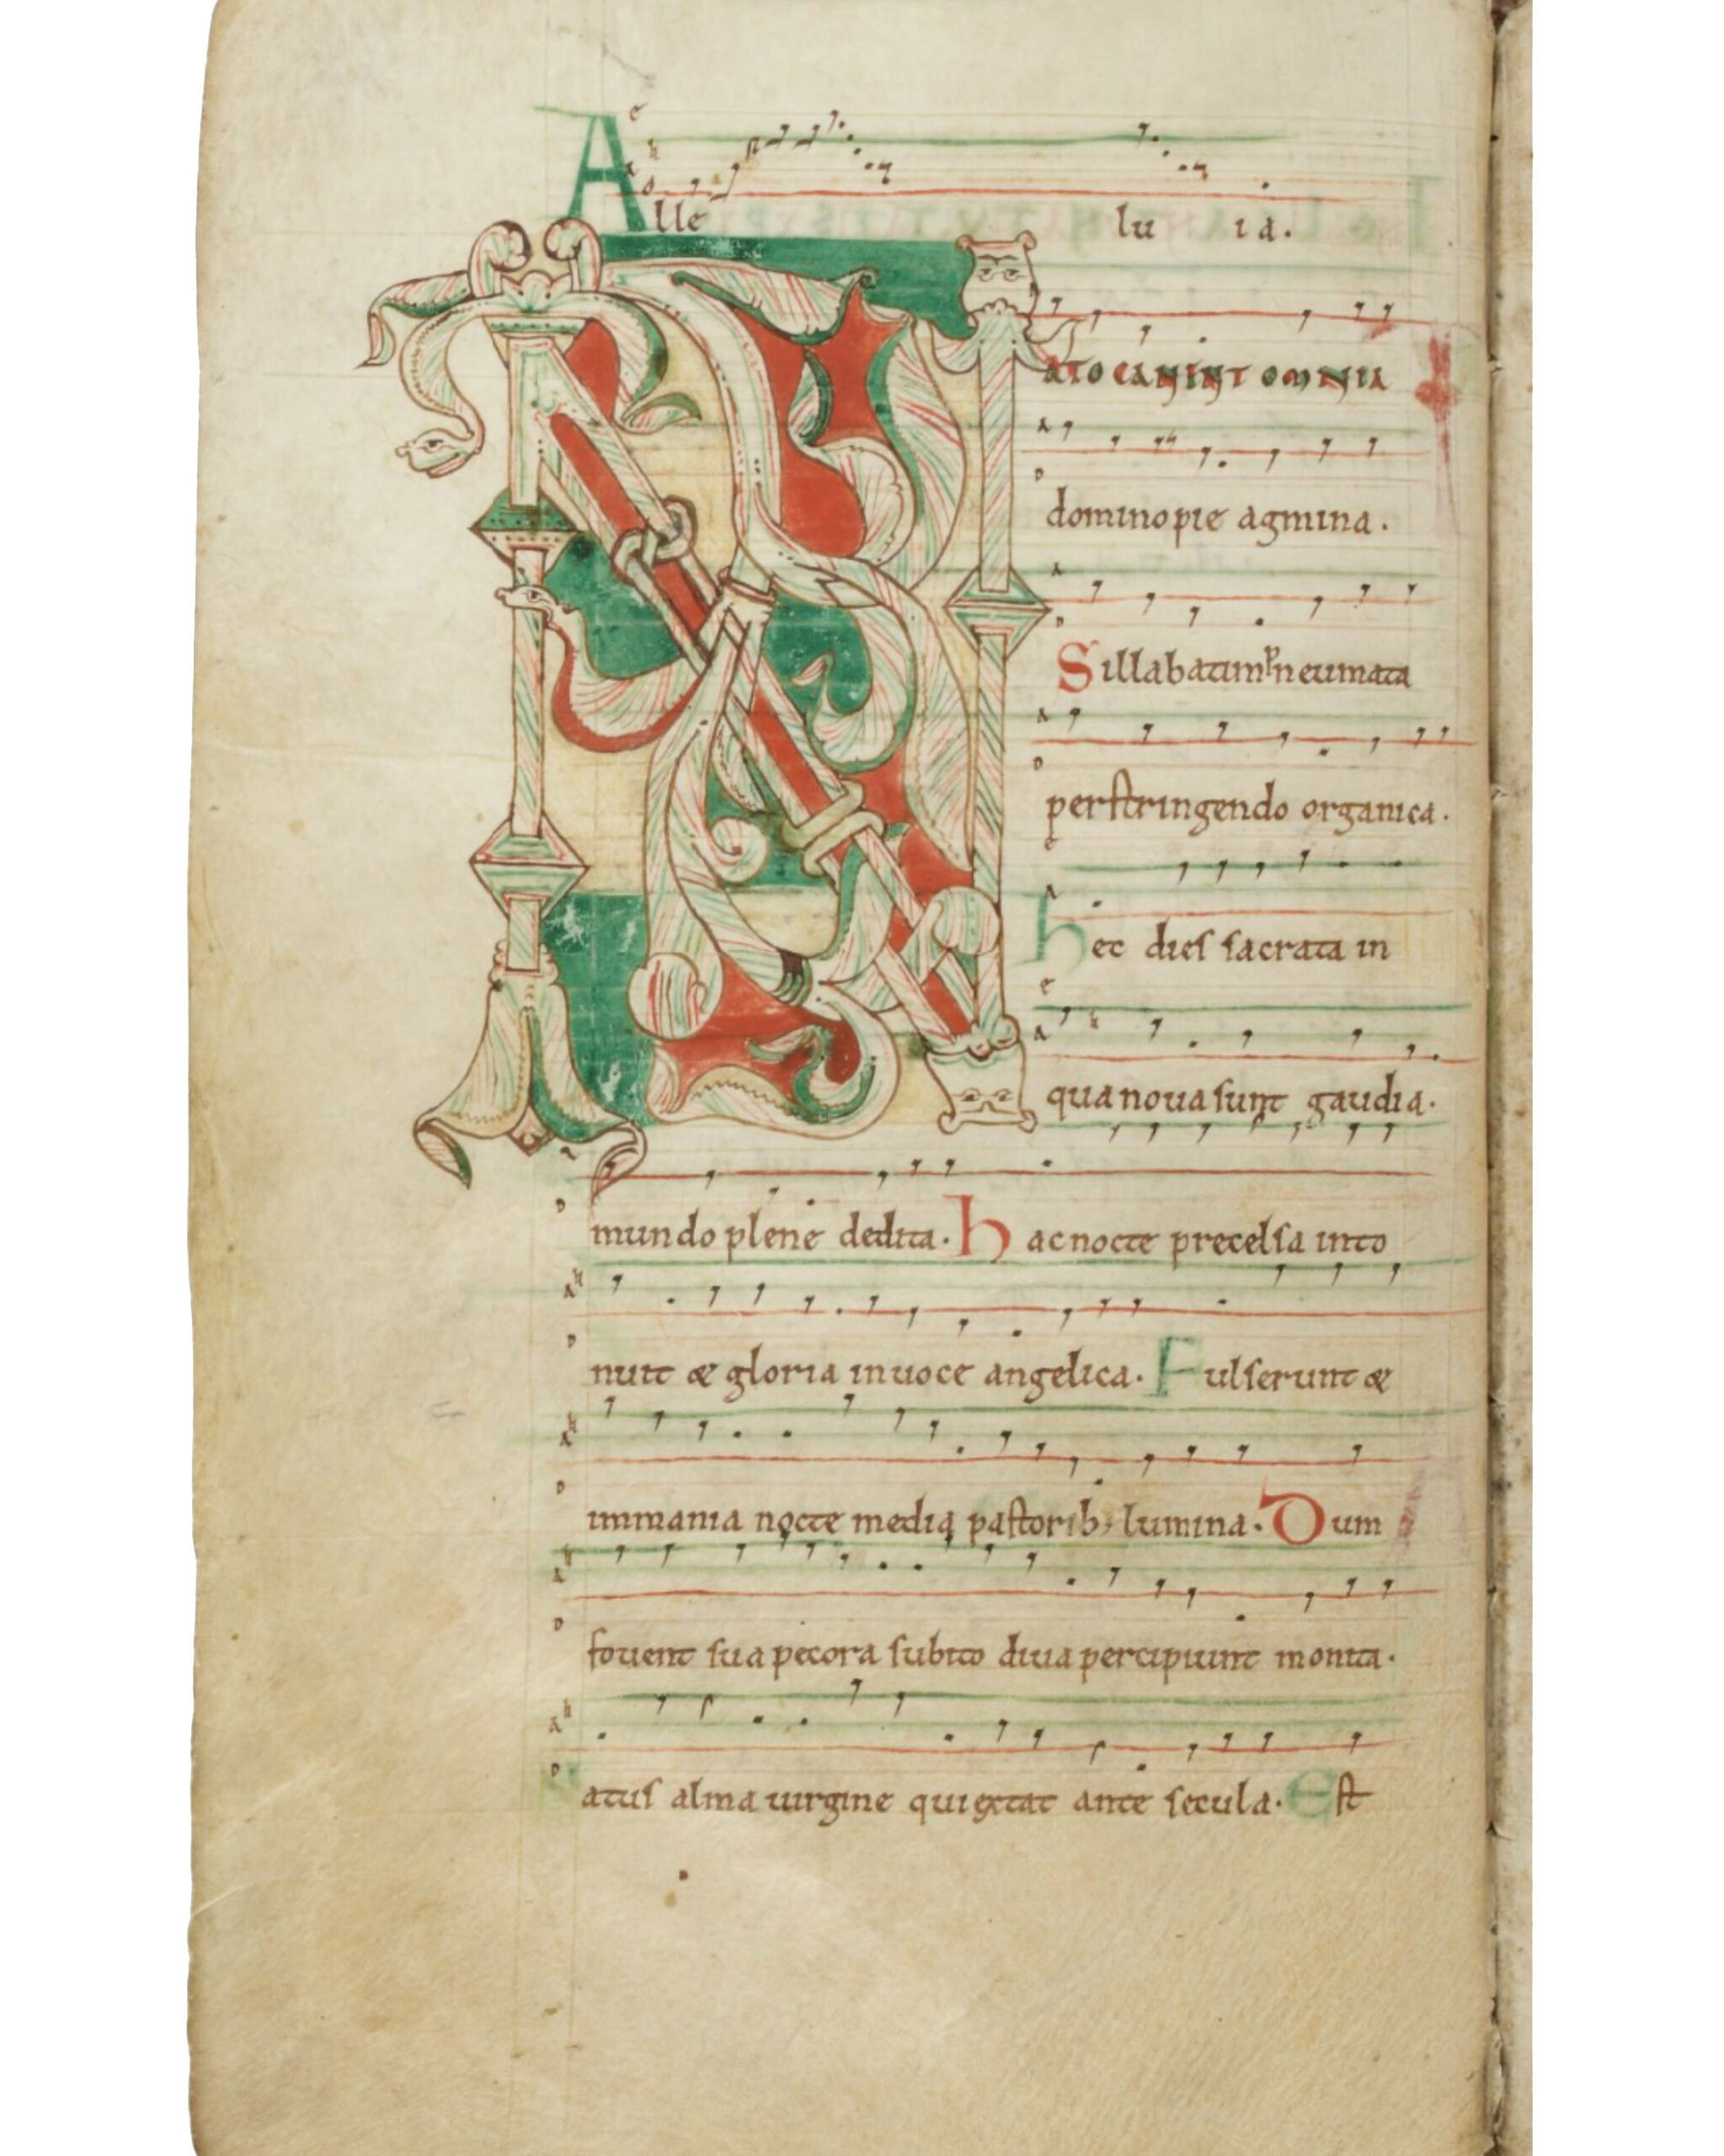 Alle lu ia.
NATO CANUNT OMNIA
domino pie agmina.
Sillabatim pneumata
perstringendo organica.
hec dies sacrata in
qua noua sunt gaudia.
mundo plene dedita. hac nocte precelsa into
nuit & gloria in uoce angelica. Fulserunt &
immania nocte media pastorib; lumina. Dum
fouent sua pecora subito diua percipiunt monita.
Natus alma uirgine qui extat ante secula. Est